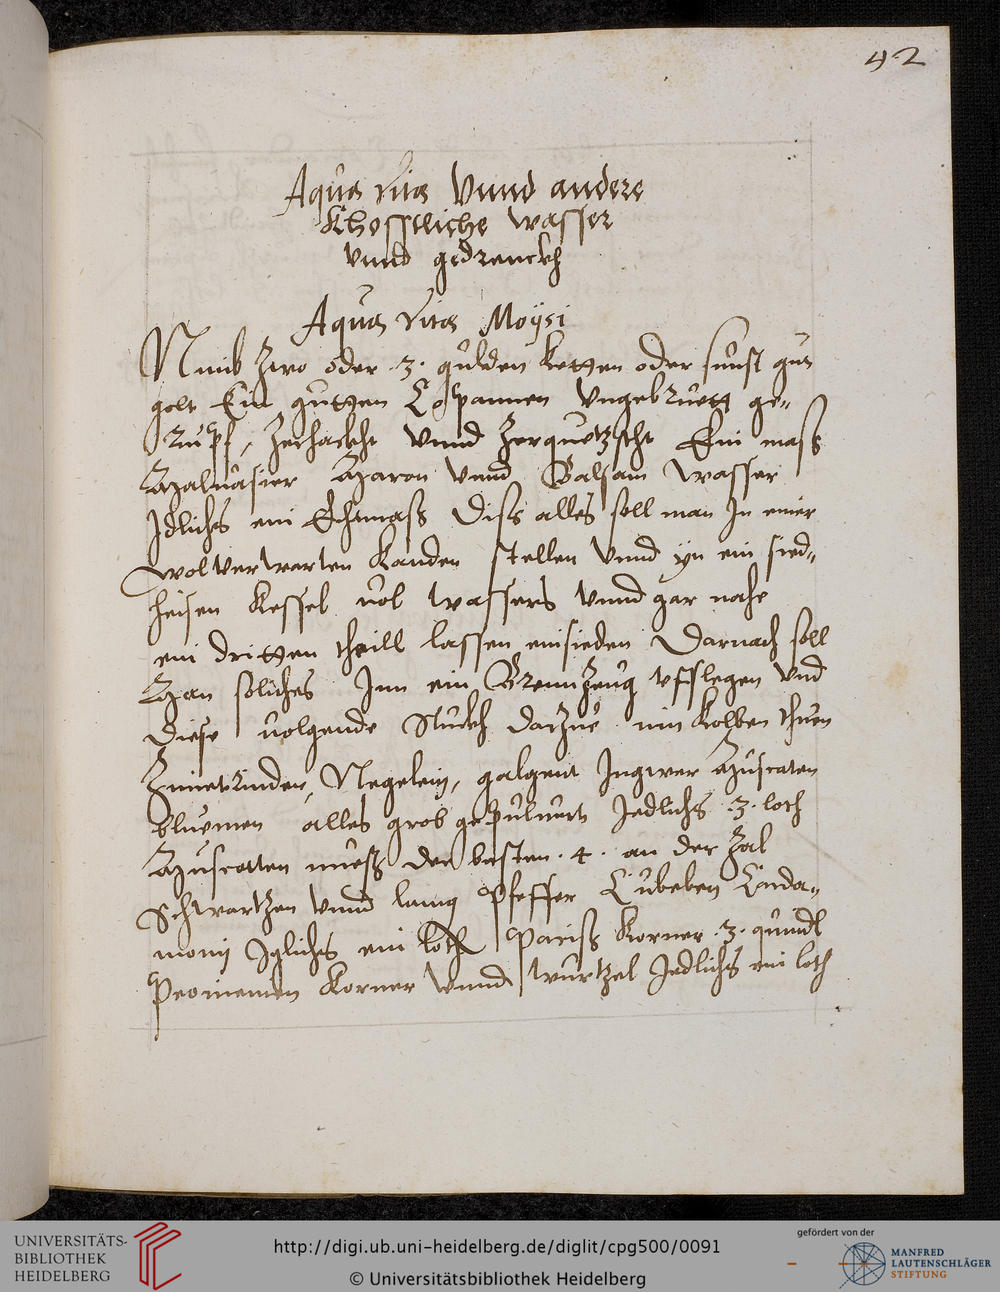 42
Aqua vita Vnnd andere
Khosstliche wasser
vnnd gedrenckh
Aqua vita Moÿsi
Nimb Zwo oder .3. gulden ketten oder sunst gut
golt Ein gutten Copaunen Vngebruett ge„
rupf, Zerhackht Vnnd Zerquetzscht Ein mass
Maluasier Maron Vnnd Balsam wasser
Jdliches ein Echtmass Diss alles soll man Jn einer
wol verwarten Kanden stellen Vnnd yn ein sied„
heisen Kessel vol wassers Vnnd gar nahe
ein dritten theill lassen einsieden Darnach soll
Man soliches Jnn ein Brennzeug vfslegen Vnd
Diese volgende Stuckh darzue inn Kolben thuen
Zimetrinden, Negelein, galgent Jngwer Muscaten
bluemen alles grob gepuluert Jedlichs .3. loth
Muscatten nuess der besten .4. an der Zal
Schwartzen Vnnd lanng Pfeffer Cubeben Carda„
monij Jgliches ein loth Pariss Korner .3. quindl
Peoniemen Korner Vnnd wurtzel Jedlichs ein loth
UNIVERSITÄTS-
BIBLIOTHEK
HEIDELBERG
http://digi.ub.uni-heidelberg.de/diglit/cpg500/0091
© Universitätsbibliothek Heidelberg
gefördert von der
MANFRED
LAUTENSCHLÄGER
STIFTUNG